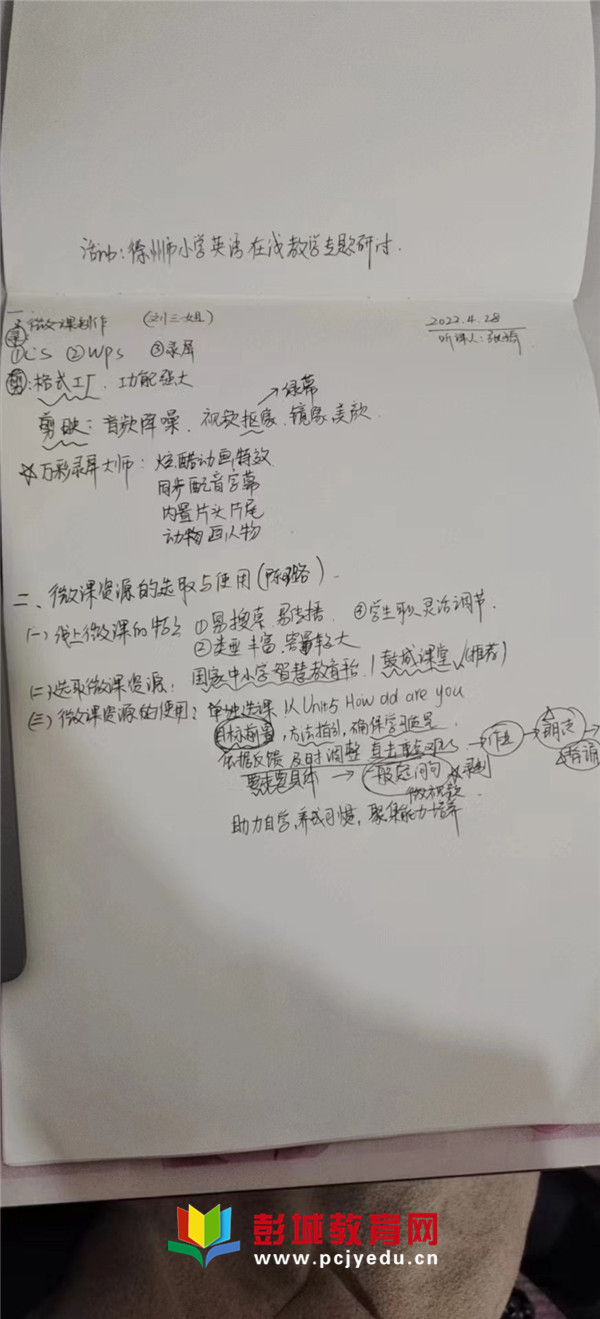 活动:徐州市小学英语在线教学专题研讨.
一、微课制作 (刘三姐)
2022.4.28
听课人:
录:
①CS ②WPS ③录屏
剪:格式工厂.功能强大
剪映:音频降噪、视频抠像、镜像、美颜
→绿幕
☆万彩录屏大师:炫酷动画特效
同步配音字幕
内置片头片尾
动物画人物
二、微课资源的选取与使用
(一)线上微课的特点 ①易搜索.易传播. ③学生可以灵活调节.
②类型丰富.容量较大
(二)选取微课资源:国家中小学智慧教育平台、彭城课堂√(推荐)
(三)微课资源的使用:单独选课 以Unit5 How old are you
目标前置,方法指引,确保学习质量.
依据反馈 及时调整 直击重点难点→作业→朗读→
背诵
要求要具体→一般疑问句☆录制
微视频.
助力自学,养成习惯,聚焦能力培养
彭城教育网
www.pcjyedu.cn